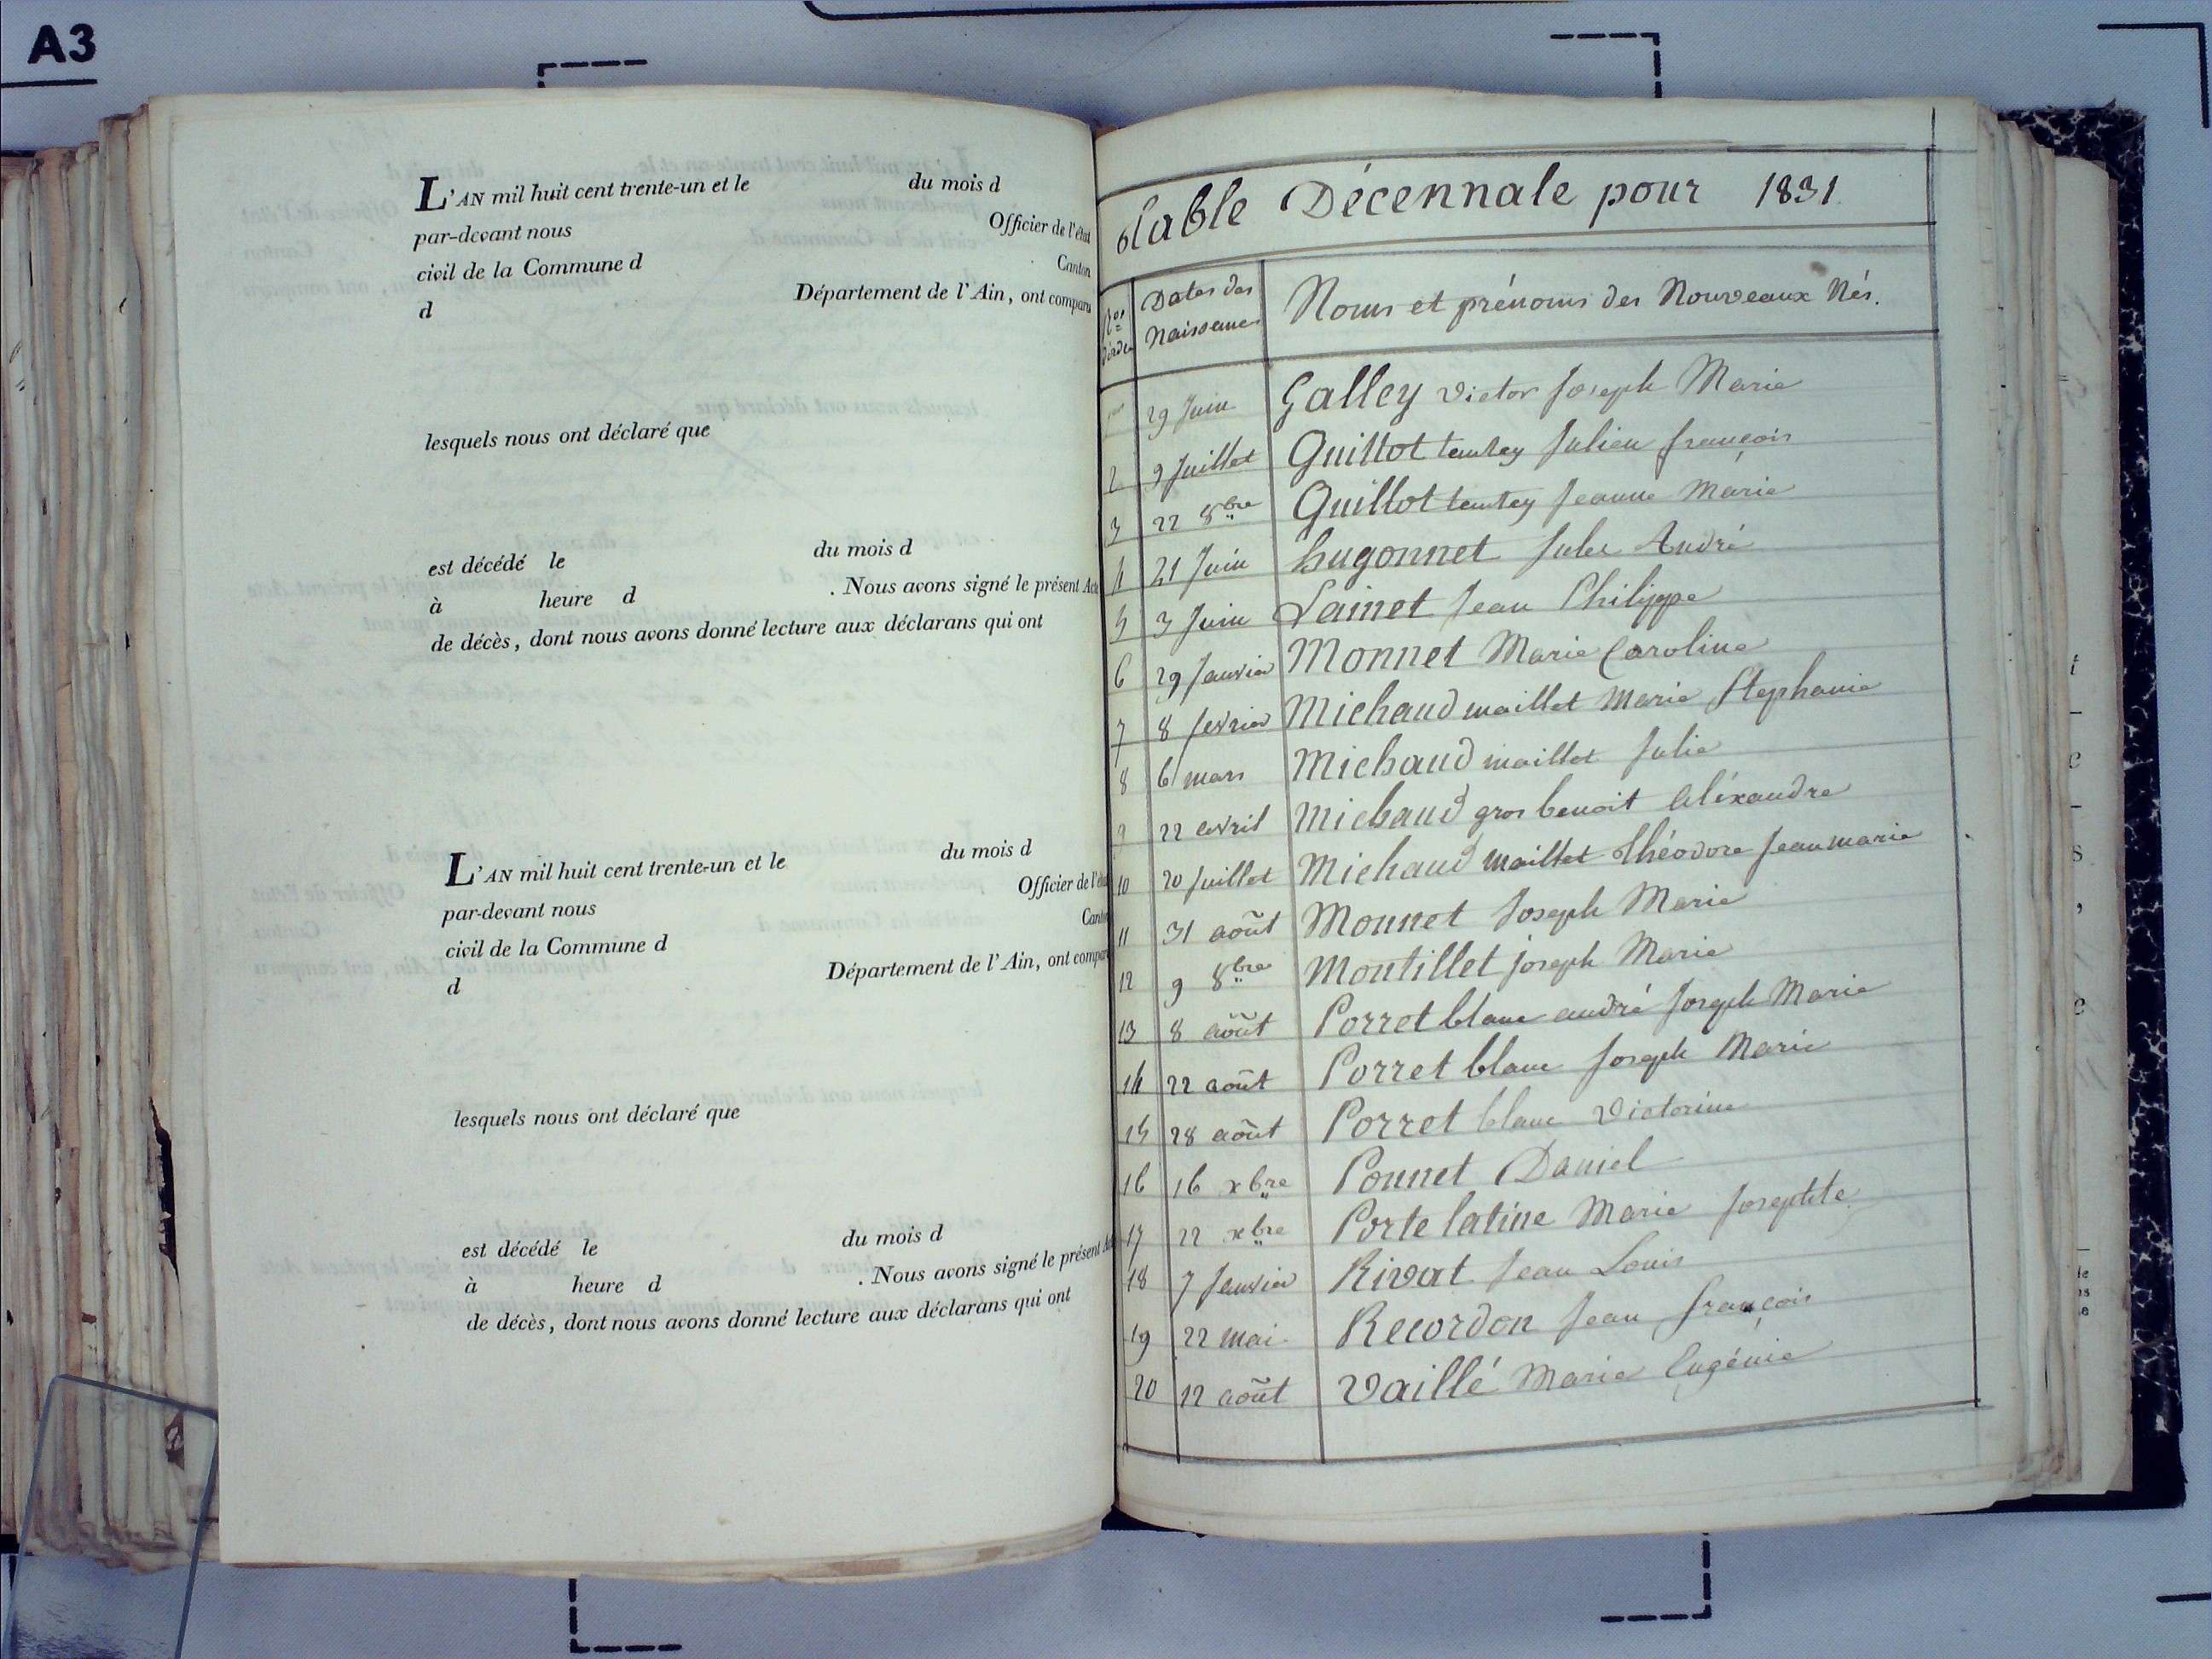 A3
L'AN mil huit cent trente-un et le du mois d
par-devant nous Officier de l'état
civil de la Commune d Canton
d Département de l'Ain, ont comparu
lesquels nous ont déclaré que
est décédé le du mois d
à heure d . Nous avons signé le présent Acte
de décès, dont nous avons donné lecture aux déclarans qui ont
L'AN mil huit cent trente-un et le du mois d
par-devant nous Officier de l'état
civil de la Commune d Canton
d Département de l'Ain, ont comparu
lesquels nous ont déclaré que
est décédé le du mois d
à heure d . Nous avons signé le présent
de décès, dont nous avons donné lecture aux déclarans qui ont
table Décennale pour 1831
Nos d'ordre Dates des Naissances Noms et prénoms des Nouveaux Nés.
29 Juin Galley victor Joseph Marie
2 9 Juillet Guillot Julien françois
3 22 8bre Guillot Jeanne Marie
4 21 Juin hugonnet Jules André
5 3 Juin Lainet Jean Philippe
6 29 Janvier Monnet Marie Caroline
7 8 fevrier Michaud maillet Marie Stephanie
8 6 mars Michaud maillet Julie
9 22 avril Michaud gros benoit aléxandre
10 20 Juillet Michaud maillet théodore Jean marie
11 31 août Monnet Joseph Marie
12 9 8bre Montillet joseph Marie
13 8 août Porret blanc andré Joseph Marie
14 22 août Porret blanc Joseph Marie
15 28 août Porret blanc Victorine
16 16 xbre Ponnet Daniel
17 22 xbre Porte latine Marie Josephte
18 7 Janvier Rivat Jean Louis
19 22 mai Recordon Jean françois
20 12 août Vaillé Marie Eugénie